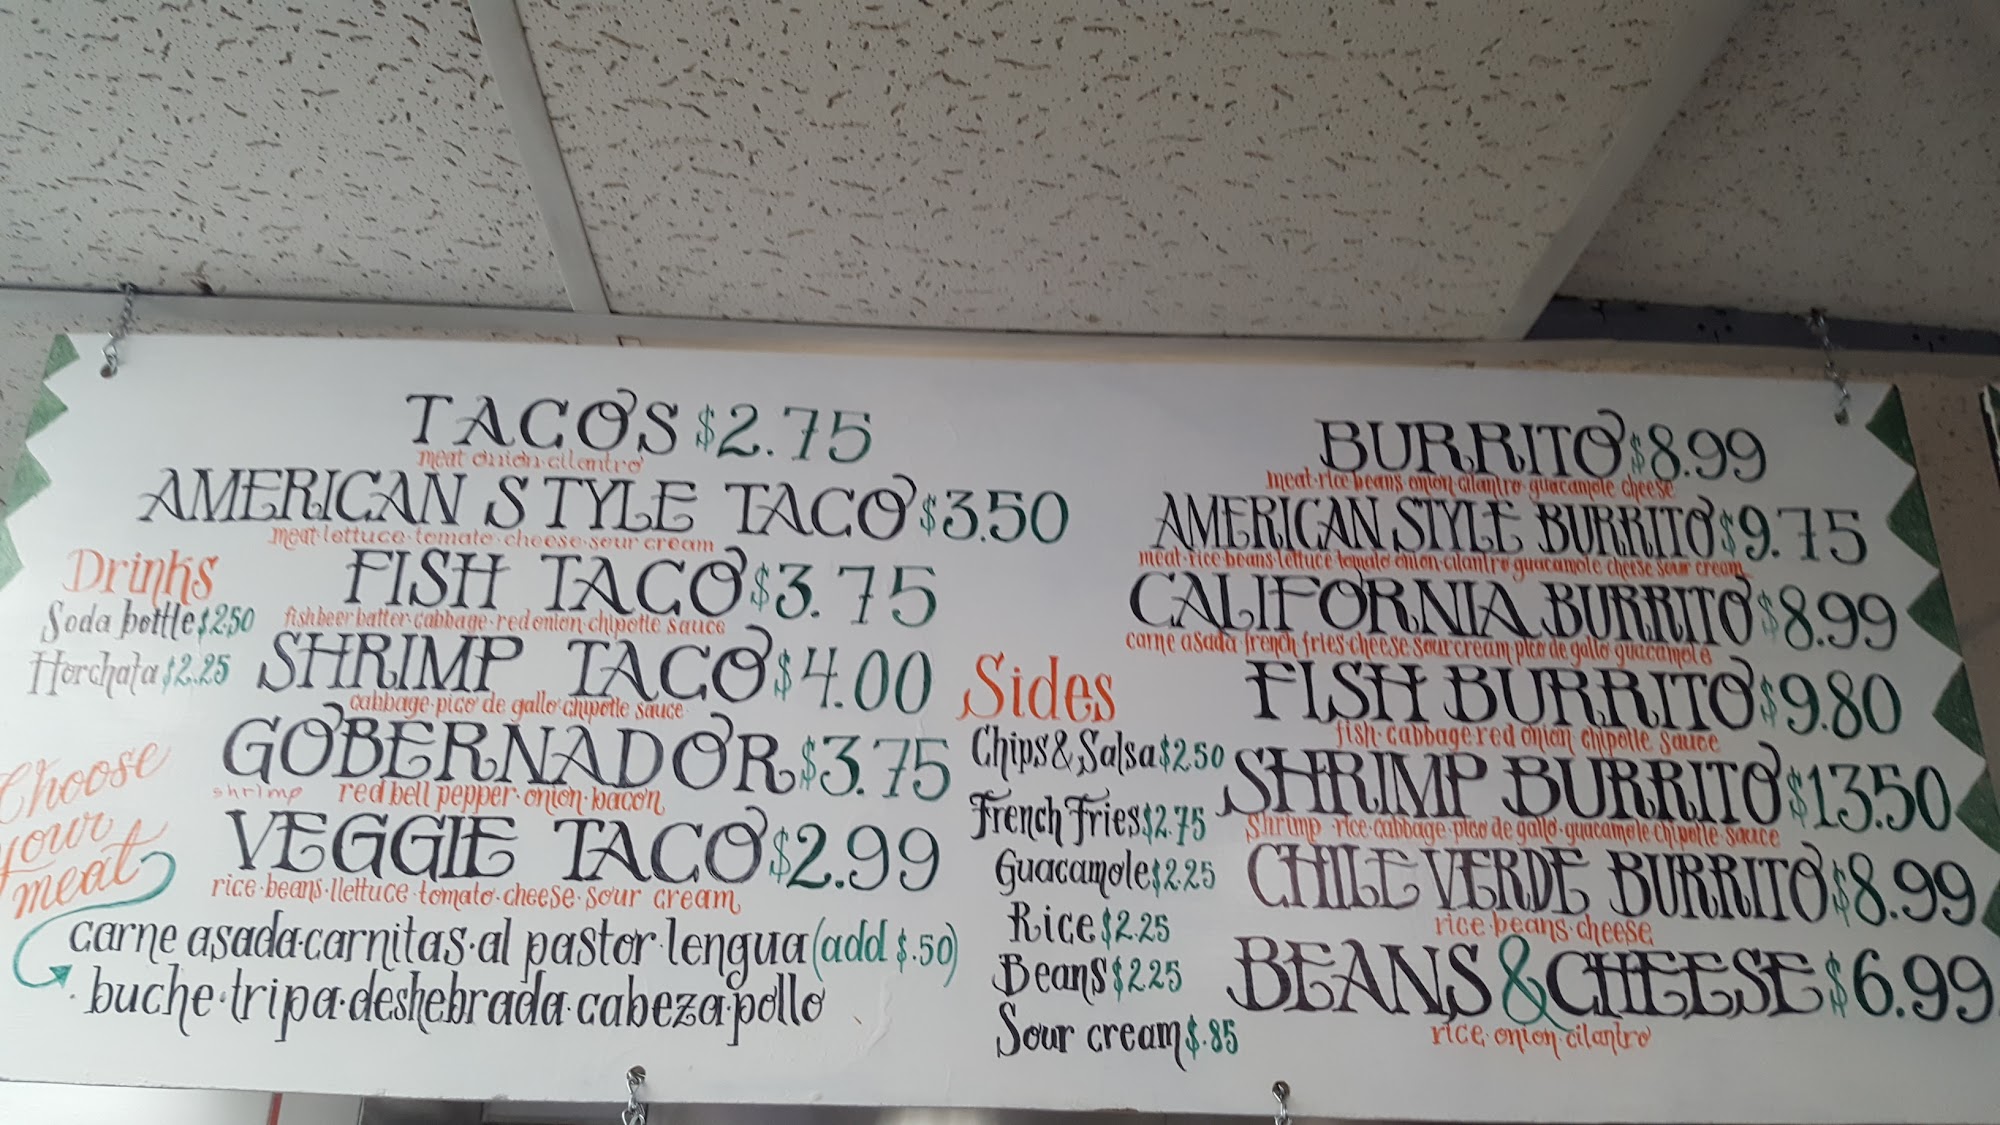 TACOS $2.75
meat·onion·cilantro
AMERICAN STYLE TACO $3.50
meat·lettuce·tomato·cheese·sour cream
FISH TACO $3.75
fish beer batter·cabbage·red onion·chipotle sauce
SHRIMP TACO $4.00
cabbage·pico de gallo·chipotle sauce
GOBERNADOR $3.75
shrimp red bell pepper·onion·bacon
VEGGIE TACO $2.99
rice·beans·llettuce·tomato·cheese·sour cream
Drinks
Soda bottle $2.50
Horchata $2.25
Choose
your
meat
carne asada·carnitas·al pastor·lengua (add $.50)
·buche·tripa·deshebrada·cabeza·pollo
Sides
Chips & Salsa $2.50
French Fries $2.75
Guacamole $2.25
Rice $2.25
Beans $2.25
Sour cream $.85
BURRITO $8.99
meat·rice·beans·onion·cilantro·guacamole·cheese
AMERICAN STYLE BURRITO $9.75
meat·rice·beans·lettuce·tomato·onion·cilantro·guacamole·cheese·sour cream
CALIFORNIA BURRITO $8.99
carne asada·french fries·cheese·sour cream·pico de gallo·guacamole
FISH BURRITO $9.80
fish·cabbage·red onion·chipotle sauce
SHRIMP BURRITO $13.50
Shrimp·rice·cabbage·pico de gallo·guacamole·chipotle·sauce
CHILE VERDE BURRITO $8.99
rice·beans·cheese
BEANS & CHEESE $6.99
rice·onion·cilantro